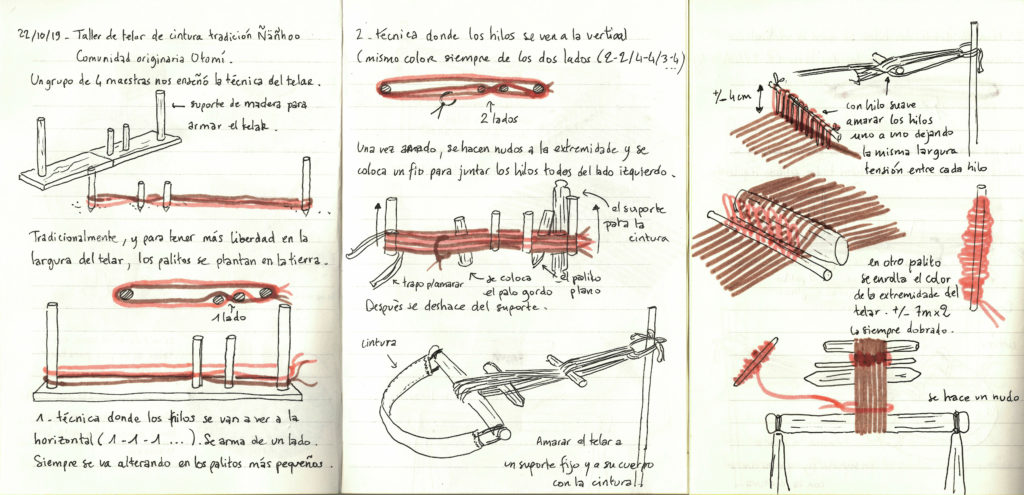 22/10/19 - Taller de telar de cintura tradición Ñäñhoo
Comunidad originaria Otomí.
Un grupo de 4 maestras nos enseñó la técnica del telar.
suporte de madera para
armar el telar.
Tradicionalmente, y para tener más libertad en la
largura del telar, los palitos se plantan en la tierra.
1 lado
1 - técnica donde los hilos se van a ver a la
horizontal (1-1-1 ...). Se arma de un lado.
Siempre se va alterando en los palitos más pequeños.
2 - técnica donde los hilos se ven a la vertical
(mismo color siempre de los dos lados (2-2/4-4/3-4...)
2 lados
Una vez armado, se hacen nudos a la extremidade y se
coloca un fio para juntar los hilos todos del lado izquierdo.
el suporte
para la
cintura
trapo p/amarar
se coloca
el palo gordo
el palito
plano
Después se deshace del suporte.
cintura
Amarar el telar a
un suporte fijo y a su cuerpo
con la cintura.
+/- 4cm
con hilo suave
amarar los hilos
uno a uno dejando
la misma largura
tensión entre cada hilo
en otro palito
se enrolla el color
de la extremidade del
telar. +/- 7m x 2
la siempre dobrado.
se hace un nudo